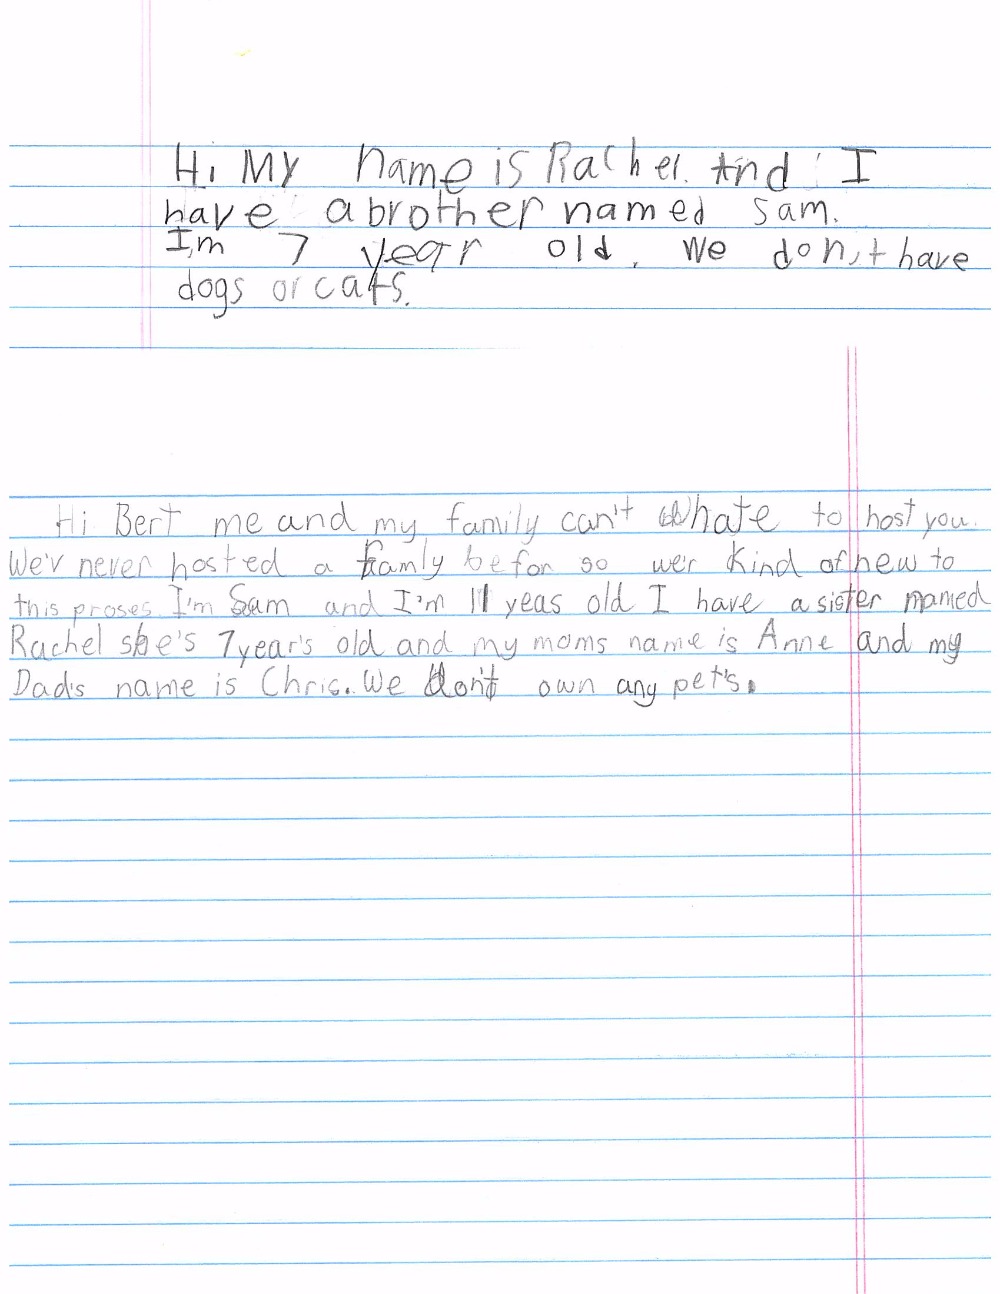 Hi My name is Rachel. And I
have a brother named Sam.
I,m 7 year old. We don,t have
dogs or cats.
Hi Bert me and my family can't whate to host you.
We'v never hosted a famly befor so wer kind of new to
this proses. I'm Sam and I'm 11 yeas old I have a sister named
Rachel she's 7 year's old and my moms name is Anne and my
Dad's name is Chris. We don't own any pet's.